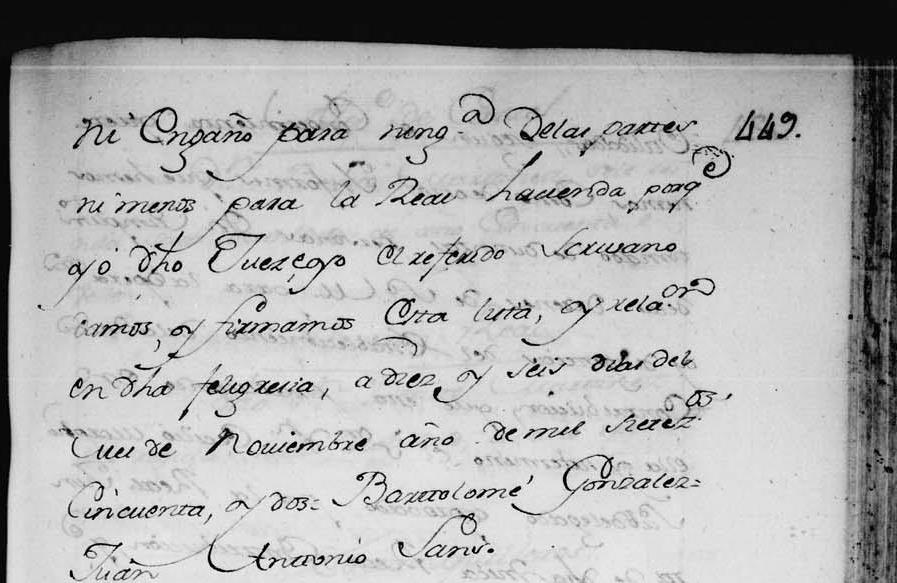 449.
ni Engaño para ning.a Delas partes
ni menos para la Real hacienda porq.e
yo dho Juez, è yo el referido Scrivano
damos, y firmamos Esta lista, y relaz.on
en dha feligresia, a diez y seis dias del
mes de Noviembre año de mil setez.os
Cincuenta, y dos= Bartolomé Gonzalez=
Juan Antonio Sans.